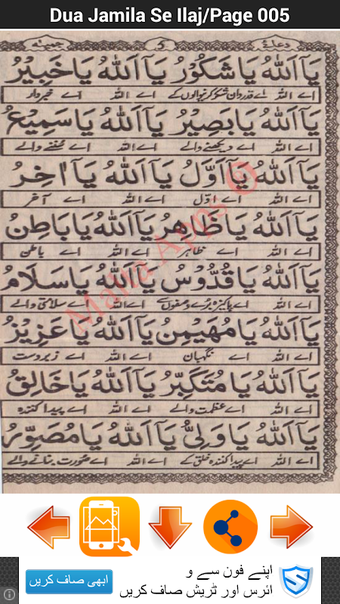 Dua Jamila Se Ilaj/Page 005
دعائے جمیلہ
5
يَا اَللهُ يَا شَكُوْرُ يَا اَللهُ يَا خَبِيْرُ
اے اللہ اے قدردان شکر کرنیوالوں کے اے اللہ اے خبردار
يَا اَللهُ يَا بَصِيْرُ يَا اَللهُ يَا سَمِيْعُ
اے اللہ اے دیکھنے والے اے اللہ اے سننے والے
يَا اَللهُ يَا اَوَّلُ يَا اَللهُ يَا اٰخِرُ
اے اللہ اے اوّل اے اللہ اے آخر
يَا اَللهُ يَا ظَاهِرُ يَا اَللهُ يَا بَاطِنُ
اے اللہ اے ظاہر اے اللہ اے باطن
يَا اَللهُ يَا قُدُّوْسُ يَا اَللهُ يَا سَلَامُ
اے اللہ اے پاکیزہ اے اللہ اے سلامتی والے
يَا اَللهُ يَا مُهَيْمِنُ يَا اَللهُ يَا عَزِيْزُ
اے اللہ اے نگہبان اے اللہ اے زبردست
يَا اَللهُ يَا مُتَكَبِّرُ يَا اَللهُ يَا خَالِقُ
اے اللہ اے عظمت والے اے اللہ اے پیدا کنندہ
يَا اَللهُ يَا وَلِيُّ يَا اَللهُ يَا مُصَوِّرُ
اے اللہ اے پیدا کنندہ خلق کے اے اللہ اے صورت بنانے والے
Malia Apps ©
اپنے فون سے و
ائرس اور ٹریش صاف کریں
ابھی صاف کریں